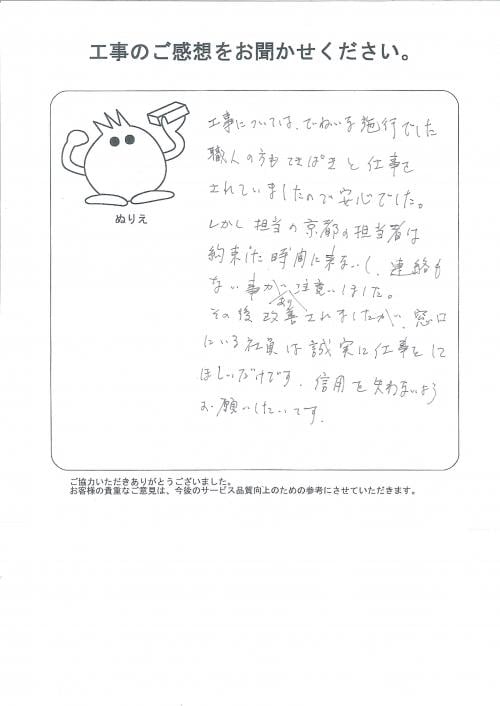 工事のご感想をお聞かせください。
工事については、ていねいな施行でした
職人の方もてきぱきと仕事を
されていましたので安心でした。
しかし担当の京都の担当者は
約束した時間に来ないし、連絡も
ない事があり注意しました。
その後改善されましたが、窓口
にいる社員は誠実に仕事をして
ほしいだけです。信用を失わないよう
お願いしたいです。
ぬりえ
ご協力いただきありがとうございました。
お客様の貴重なご意見は、今後のサービス品質向上のための参考にさせていただきます。